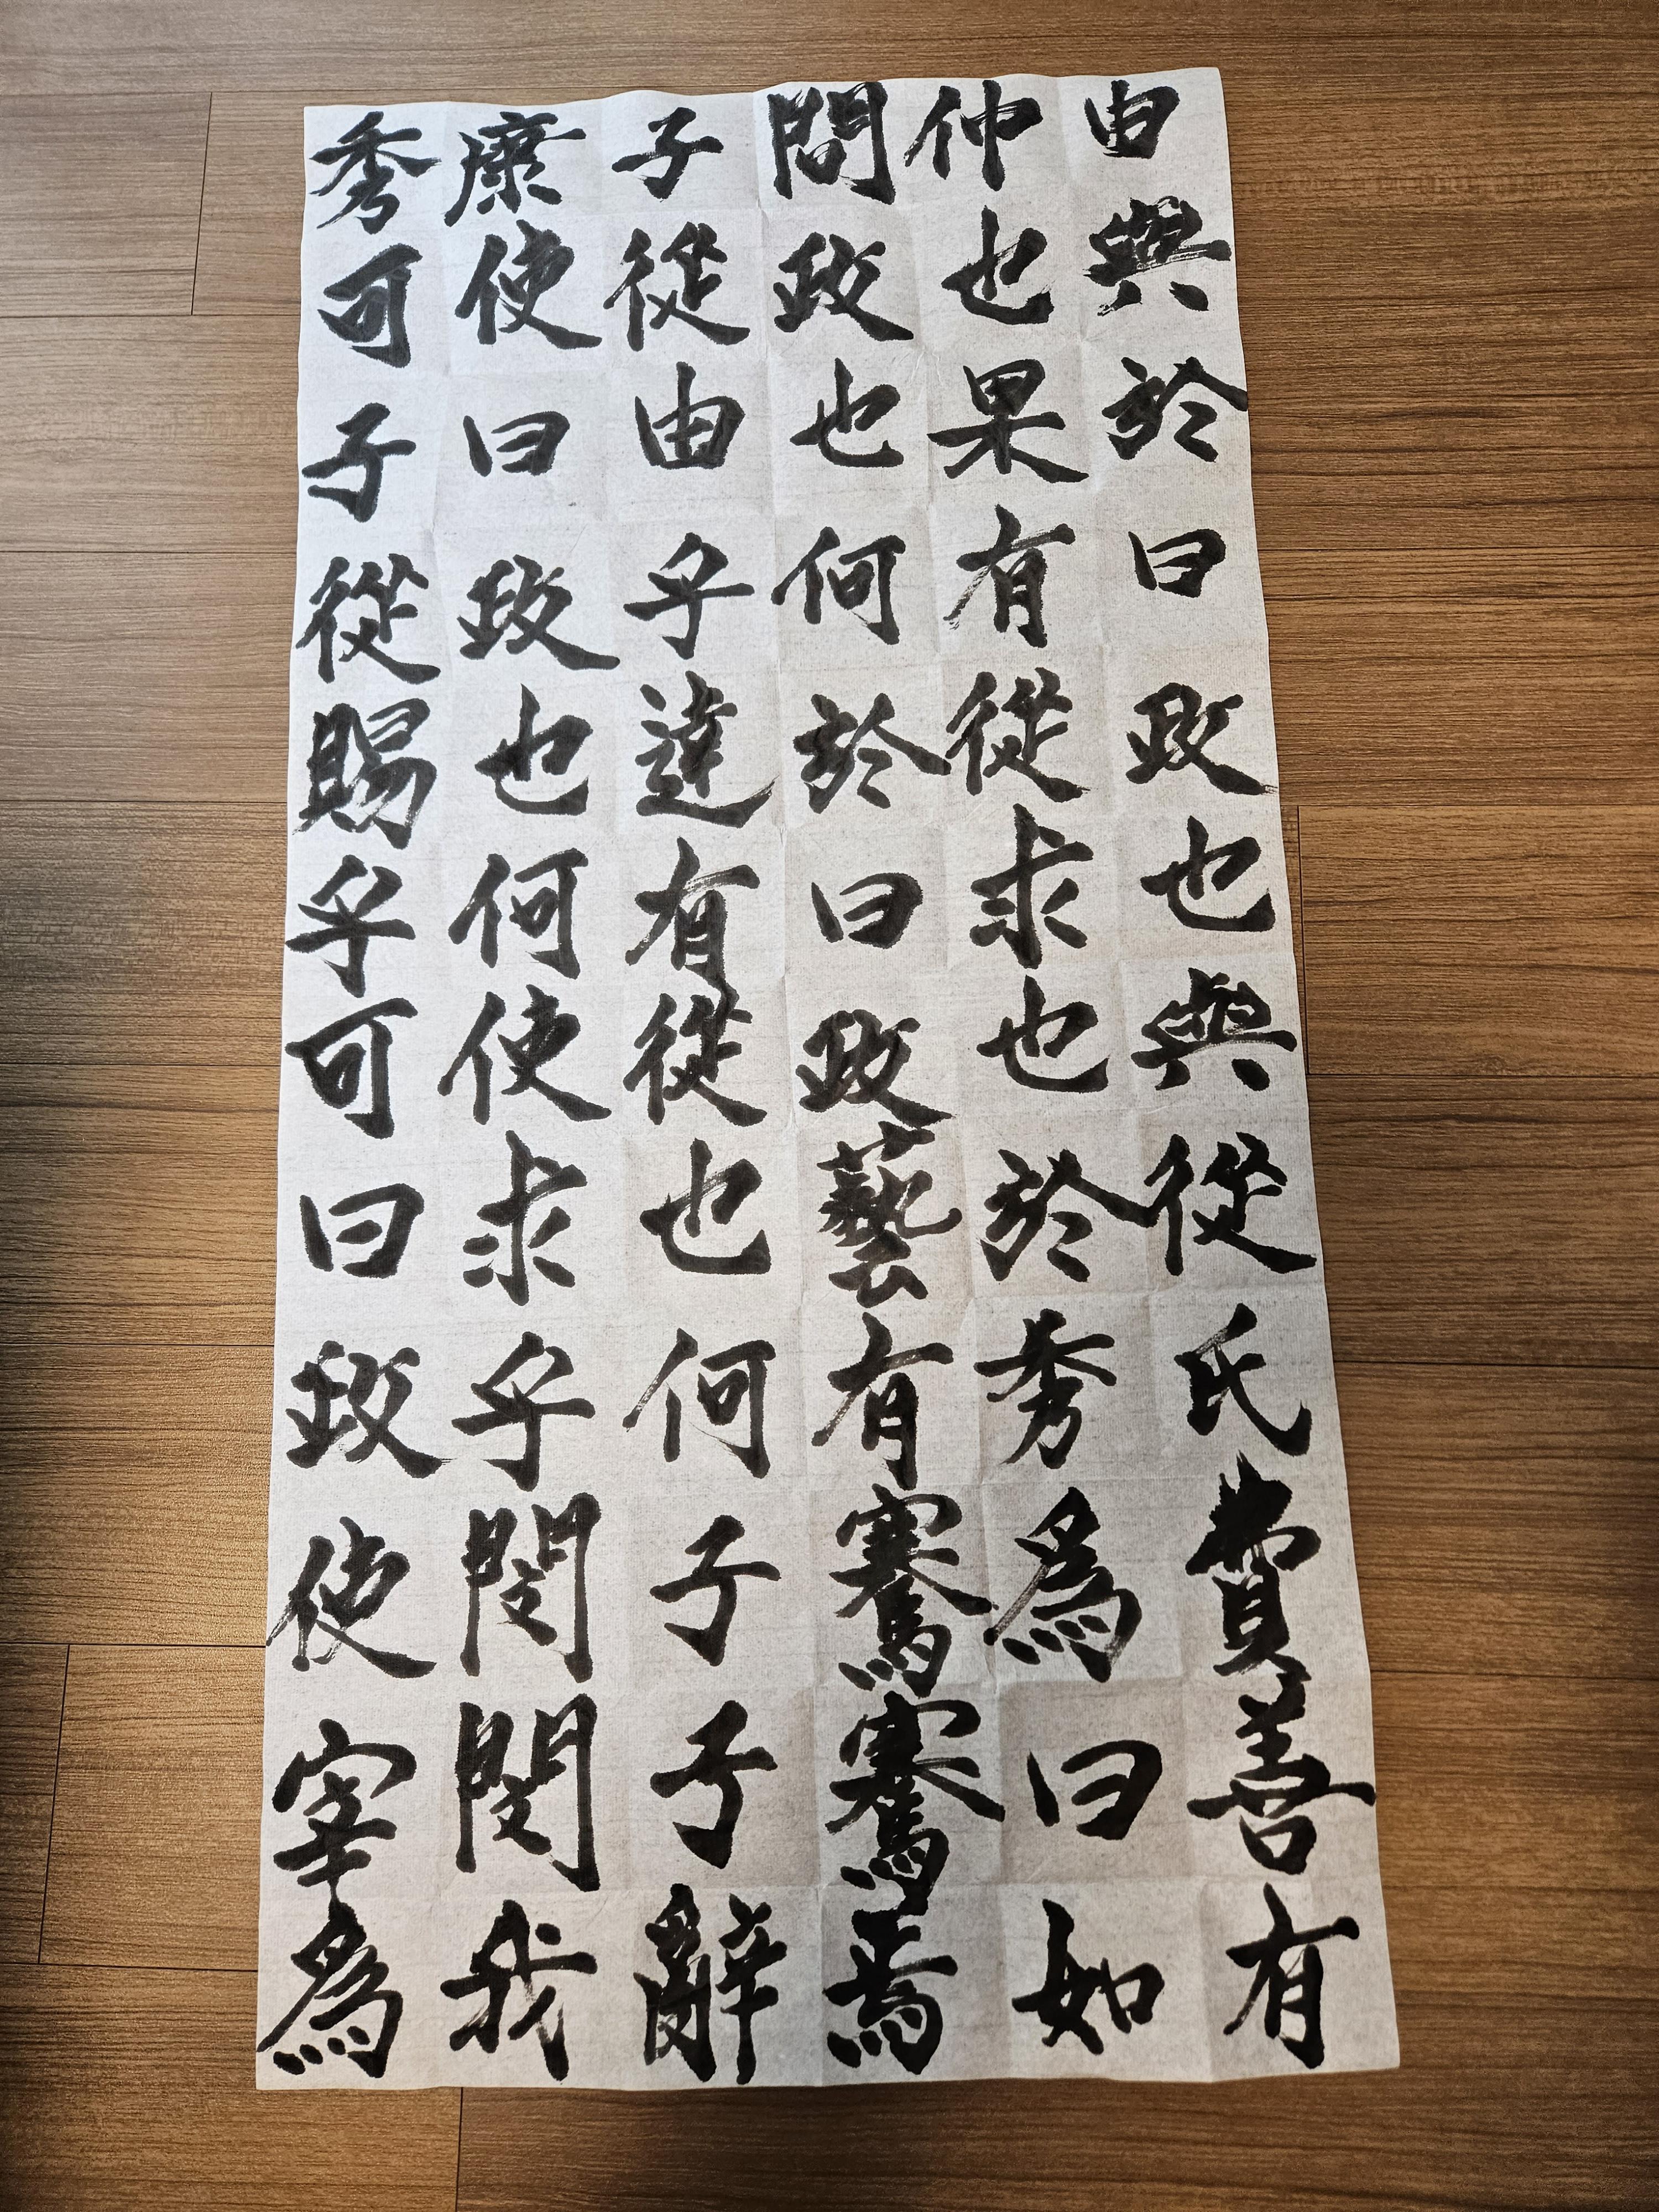 季康子問仲由
可使從政也與
子曰由也果於
從政乎何有曰
賜也達於從政
乎何有曰求也
可使從政也與
曰求也藝於從
政乎何有季氏
使閔子騫爲費
宰閔子騫曰善
爲我辭焉如有